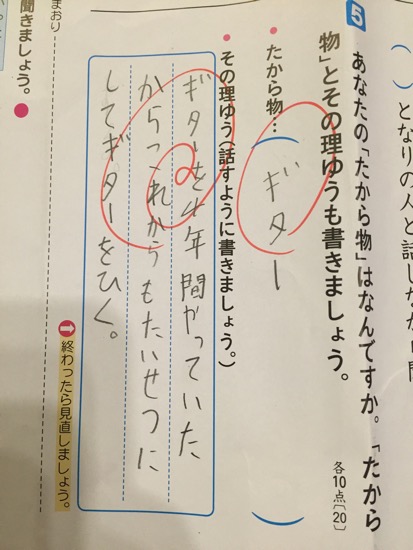 となりの人と話しな
5 あなたの「たから物」はなんですか。「たから
物」とその理ゆうも書きましょう。
各10点〔20〕
たから物…（ギター）
その理ゆう（話すように書きましょう。）
ギターを4年間やっていた
からこれからもたいせつに
してギターをひく。
➡終わったら見直しましょう。
まおり
聞きましょう。